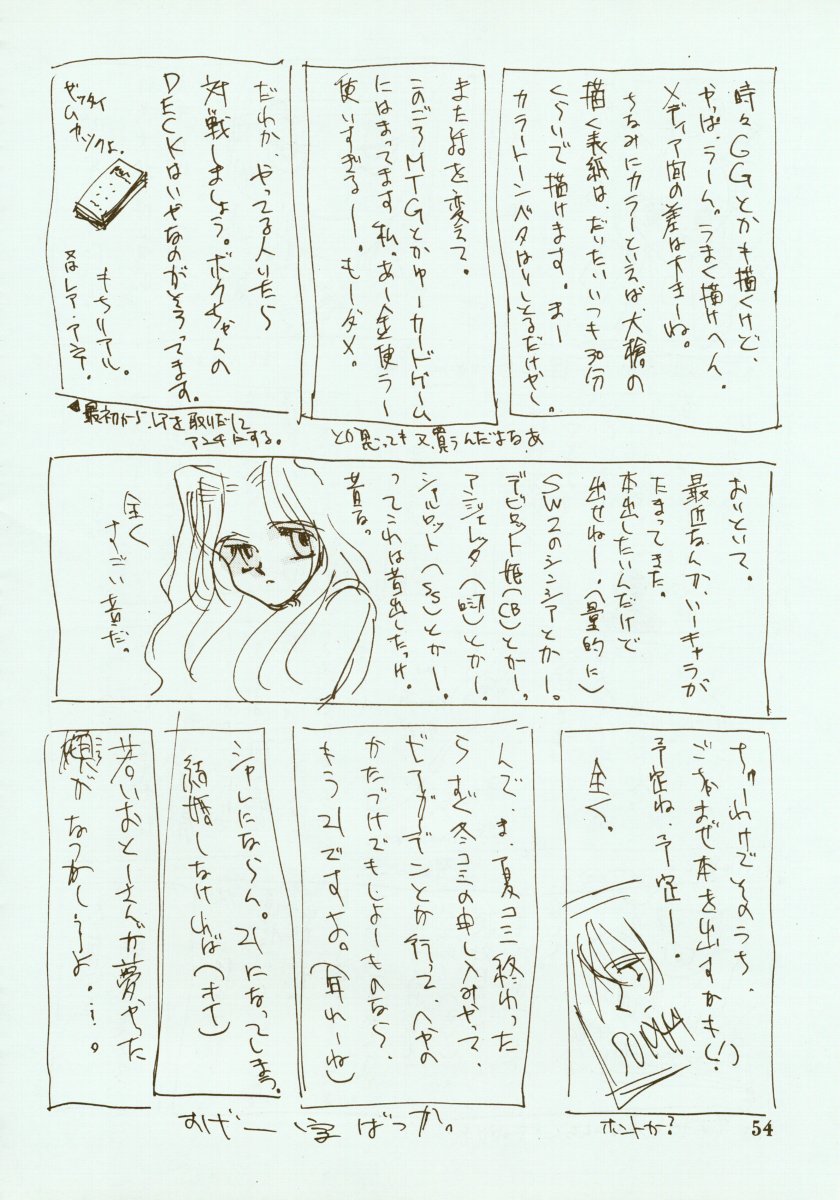 時々GGとかも描くけど、
やっぱ、うーん。うまく描けへん。
メディア間の差は大きーね。
ちなみにカラーといえば犬槍の
描く表紙は、だいたいいつも30分
くらいで描けます。まー
カラートーンベタはりしとるだけやしー
また話を変えて。
このごろMTGとかゆーカードゲーム
にはまってます私。あー金使うー
使いすぎるー。もーダメ。
とか思っても又買うんだよなあ
だれか、やってる人いたら
対戦しましょう。ボクちゃんの
DECKはいやなのがそろってます。
ゼッタイ
ムカツクよ。
▲最初から、レアを取りだして
アンチにする。
おいといて。
最近なんか、いーキャラが
たまってきた。
本出したいんだけで
出せねー。(量的に)
SW2のシンシアとかー。
デビロット姫(CB)とかー。
アンジェレッタ
とかー。
シャルロット(SS)とかー。
ってこれは昔出したっけ。
昔る。
全く
すごい昔だ。
ちゅーわけでそのうち、
ごちゃまぜ本を出すかも(!)
予定ね、予定ー。
全く。
ホントか?
んで、ま、夏コミ終わった
らすぐ冬コミの申し入みやって、
ビアガーデンとか行って、へやの
かたづけでもしよーものなら、
もう21ですな。(耳わーね)
シャレにならん。21になってしまう。
結婚しなければ
若いおとーさんが夢やった
頃がなつかしーよ。…。
おげー 字ばっか。
54